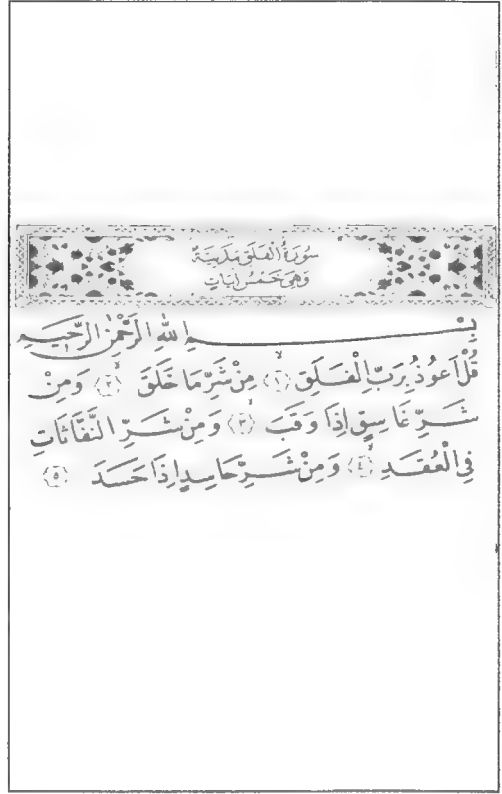 سُورَةُ الْفَلَقِ مَدَنِيَّةٌ
وَهِيَ خَمْسُ اٰيَاتٍ
بِسْمِ اللّٰهِ الرَّحْمٰنِ الرَّحِيمِ
قُلْ اَعُوذُ بِرَبِّ الْفَلَقِ ﴿١﴾ مِنْ شَرِّ مَا خَلَقَ ﴿٢﴾ وَمِنْ
شَرِّ غَاسِقٍ اِذَا وَقَبَ ﴿٣﴾ وَمِنْ شَرِّ النَّفَّاثَاتِ
فِي الْعُقَدِ ﴿٤﴾ وَمِنْ شَرِّ حَاسِدٍ اِذَا حَسَدَ ﴿٥﴾